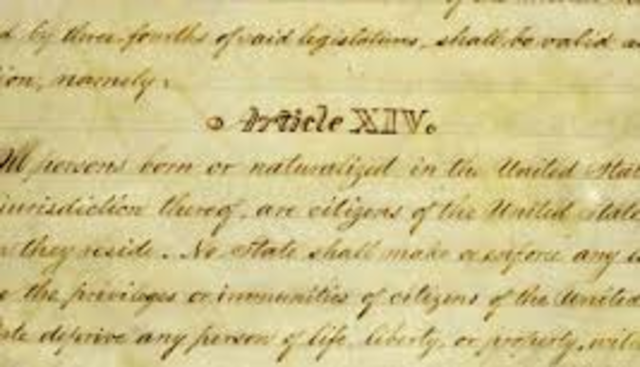 d by three-fourths of said legislatures, shall be valid a
ion, namely:
Article XIV.
All persons born or naturalized in the United Stat
jurisdiction thereof, are citizens of the United States
they reside. No State shall make or enforce any
the privileges or immunities of citizens of the United
ate deprive any person of life, liberty, or property, with